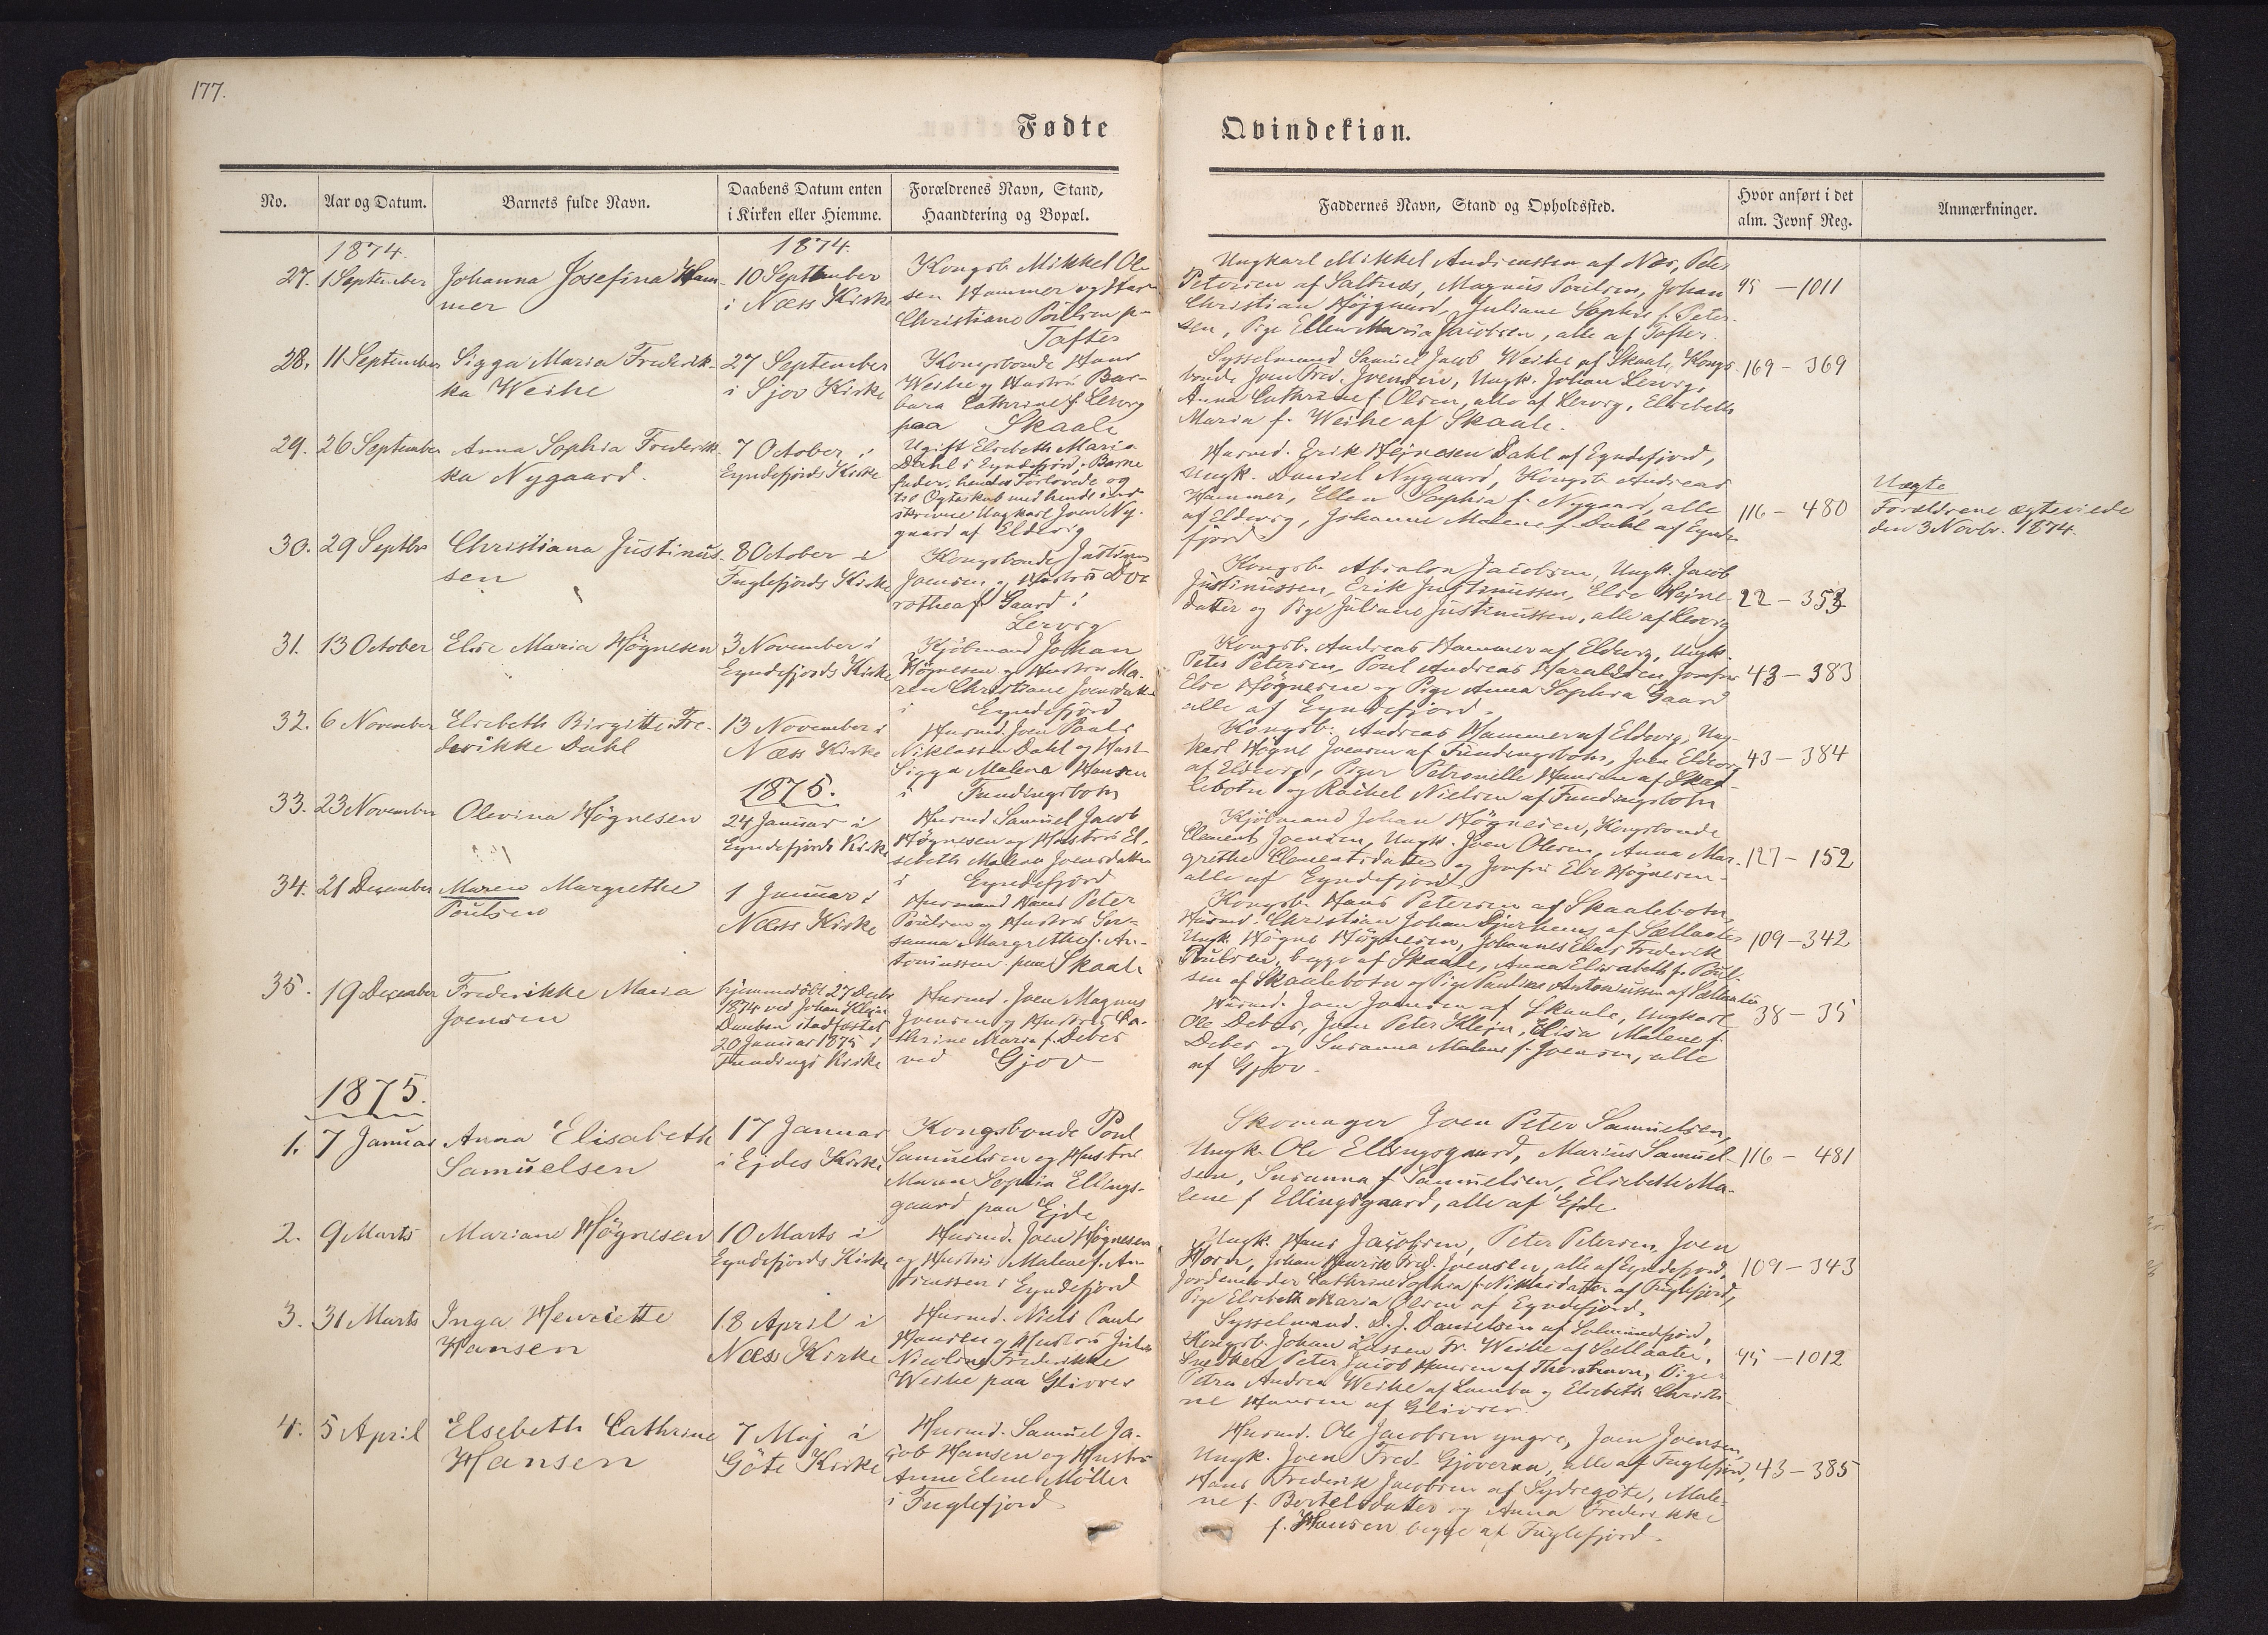 177.
Fødte
Qvindekiøn.
No.
Aar og Datum.
Barnets fulde Navn.
Daabens Datum enten
i Kirken eller Hiemme.
Forældrenes Navn, Stand,
Haandtering og Bopæl.
Faddernes Navn, Stand og Opholdssted.
Hvor anført i det
alm. Jevnf Reg.
Anmærkninger.
1874.
27. 1 September
Johanna Josefina Ham-
mer
1874.
10 September
i Næss Kirke
Kongsb. Mikkel Ole-
sen Hammer og Hustr
Christiane Poulsen p-
Tofter
Ungkarl Mikkel Andreassen af Næs, Peter
Petersen af Saltnæs, Magnus Poulsen, Johan
Christian Højgaard, Juliane Sophie f. Peter-
sen, Pige Ellen Maria Jacobsen, alle af Tofter.
95 - 1011
28. 11 September
Sigga Maria Frederik-
ka Weihe
27 September
i Sjov Kirke
Kongsbonde Hans
Weihe og Hustru Bar-
bara Cathrine f. Lervig
paa Skaale
Sysselmand Samuel Jacob Weihe af Skaale, Kongs-
bonde Joen Fred. Joensen, Ungk. Johan Lervig,
Anna Cathrine f. Olsen, alle af Lervig, Elsebeth
Maria f. Weihe af Skaale.
169 - 369
29. 26 September
Anna Sophia Frederik-
ka Nygaard.
7 October i
Eyndefjords Kirke
Ugift Elsebeth Maria
Dahl i Eyndefjord; Barne
fader, hendes Forlovede og
til Ægteskab med hende ind
skrevne Ungkarl Joen Ny-
gaard af Eldevig
Husmd. Erik Hejnesen Dahl af Eyndefjord,
Ungk. Daniel Nygaard, Kongsb. Andreas
Hammer, Ellen Sophia f. Nygaard, alle
af Eldevig, Johanne Malene f. Dahl af Eynde-
fjord.
116 - 480
Uægte
Forældrene ægteviede
den 3 Novbr. 1874.
30. 29 Septbr
Christiana Justinus-
sen
8 October i
Fuglefjords Kirke
Kongsbonde Justinus
Joensen og Hustru Do-
rothea f. Gaard i
Lervig
Kongsb. Absalon Jacobsen, Ungk. Jacob
Justinussen, Erik Justinussen, Else Hejne-
datter og Pige Juliane Justinussen, alle af Lervig
22 - 353
31. 13 October
Else Maria Högnesen
3 November i
Eyndefjords Kirke
Kjöbmand Johan
Högnesen og Hustru Ma-
ren Christiane Joensdatter
i Eyndefjord
Kongsb. Andreas Hammer af Eldevig, Ungk
Peter Petersen, Poul Andreas Haraldsen, Jomfru
Else Högnesen og Pige Anna Sophia Gaard
alle af Eyndefjord.
43 - 383
32. 6 November
Elsebeth Birgitte Fre-
derikke Dahl
13 November i
Næss Kirke
Husmd. Joen Pauli
Niklassen Dahl og Hust-
Sigga Malena Hansen
i Fundingsbotn
Kongsb. Andreas Hammer af Eldevig, Ung-
karl Högne Joensen af Fundingsbotn, Joen Eldevig
af Eldevig, Piger Petronelle Hansen af Skaa-
lebotn og Rachel Nielsen af Fundingsbotn
43 - 384
33. 23 November
Olevina Högnesen
1875.
24 Januar i
Eyndefjords Kirke
Husmd. Samuel Jacob
Högnesen og Hustru El-
sebeth Malene Joensdatter
i Eyndefjord
Kjöbmand Johan Högnesen, Kongsbonde
Clement Joensen, Ungk. Joen Olesen, Anna Mar-
grethe Clementsdatter og Jomfru Else Högnesen
alle af Eyndefjord.
127 - 152
34. 21 December
Maren Margrethe
Poulsen
1 Januar i
Næss Kirke
Husmand Hans Peter
Poulsen og Hustru Su-
sanna Margrethe f. An-
toniussen paa Skaale
Kongsb. Hans Petersen af Skaalebotn,
Husmd. Christian Johan Djurhuus af Sælltaater
Ungk. Högne Högnesen, Johannes Elias Frederik
Poulsen, begge af Skaale, Anna Elisabeth f. Poul-
sen af Skaalebotn og Pige Pauline Antoniussen af Sælltaater
109 - 342
35. 19 December
Frederikke Maria
Joensen
hjemmedöbt 27 Decbr
1874 ved Johan Klein
Daaben stadfæstet
20 Januar 1875 i
Fundings Kirke
Husmd. Joen Magnus
Joensen og Hustru Ca-
thrine Maria f. Debes
ved Gjov
Husmd. Joen Joensen af Skaale, Ungkarl
Ole Debes, Joen Peter Klejn, Elisa Malene f.
Debes og Susanna Malene f. Joensen, alle
af Gjov.
38 - 35
1875.
1. 7 Januar
Anna Elisabeth
Samuelsen
17 Januar
i Ejdes Kirke
Kongsbonde Poul
Samuelsen og Hustru
Maren Sophia Ellings-
gaard paa Ejde
Skomager Joen Peter Samuelsen,
Ungk. Ole Ellingsgaard, Marius Samuel-
sen, Susanna f. Samuelsen, Elsebeth Ma-
lene f. Ellingsgaard, alle af Ejde.
116 - 481
2. 9 Marts
Mariane Högnesen
10 Marts i
Eyndefjords Kirke
Husmd. Joen Högnesen
og Hustru Malene f. An-
dreassen i Eyndefjord
Ungk. Hans Jacobsen, Peter Petersen, Joen
Horn, Johan Henrik Fred. Joensen, alle af Eyndefjord,
Jordemoder Cathrine Sophia f. Niklasdatter af Fuglefjord,
Pige Elsebeth Maria Olsen af Eyndefjord.
109 - 343
3. 31 Marts
Inga Henriette
Hansen
18 April i
Næss Kirke
Husmd. Niels Pauli
Hansen og Hustru Julie
Nicoline Frederikke
Weihe paa Glivrer
Sysselmand. D. J. Danielsen af Solmundefjord,
Kongsb. Johan Lassen Fr. Weihe af Sælltaater,
Snedker Peter Jacob Hansen af Thorshavn, Piger
Petra Andrea Weihe af Lamba og Elsebeth Christi-
ne Hansen af Glivrer.
95 - 1012
4. 5 April
Elsebeth Cathrine
Hansen
7 Maj i
Göte Kirke
Husmd. Samuel Ja-
cob Hansen og Hustru
Anne Elene Möller
i Fuglefjord
Husmd. Ole Jacobsen yngre, Joen Joensen,
Ungk. Joen Fred. Gjöveraa, alle af Fuglefjord,
Hans Frederik Jacobsen af Sydregöte, Male-
ne f. Bertelsdatter og Anna Frederikke
f. Hansen begge af Fuglefjord.
43 - 385